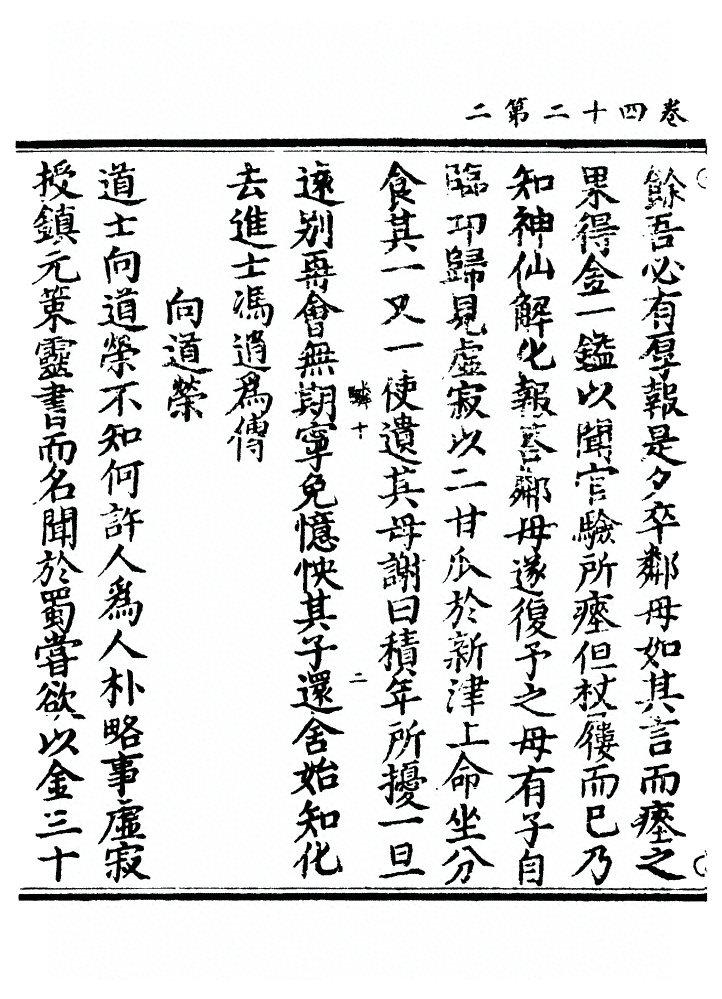 卷四十二第二
餘吾必有厚報是夕卒鄰母如其言而瘞之
果得金一鎰以聞官驗所瘞但杖屨而已乃
知神仙解化報荅鄰母遂復予之母有子自
臨卭歸見虛寂以二甘瓜於新津上命坐分
食其一又一使遺其母謝曰積年所擾一旦
遠别再會無期寧免憶怏其子還舍始知化
去進士馮逍爲傳
驎十
二
向道榮
道士向道榮不知何許人爲人朴略事虛寂
授鎮元策靈書而名聞於蜀嘗欲以金三十